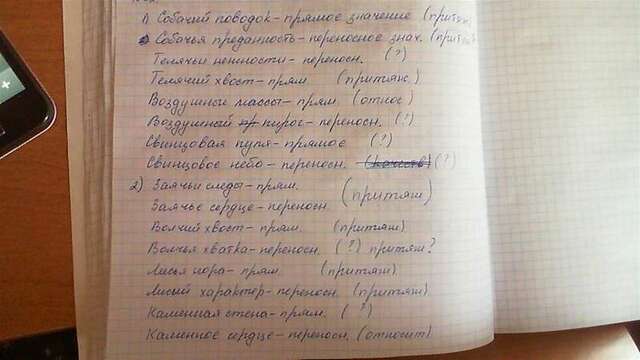 1) Собачий поводок - прямое значение (притяж.)
Собачья преданность - переносное знач. (притяж.
Телячьи нежности - переносн. (?)
Телячий хвост - прям. (притяж.)
Воздушные массы - прям. (относ)
Воздушный пирог - переносн. (?)
Свинцовая пуля - прямое (?)
Свинцовое небо - переносн. (качеств) (?)
2) Заячьи следы - прям. (притяж)
Заячье сердце - переносн.
Волчий хвост - прям. (притяж)
Волчья хватка - переносн. (?) притяж?
Лисья нора - прям. (притяж)
Лисий характер - переносн. (притяж)
Каменная стена - прям. (?)
Каменное сердце - переносн. (относит)